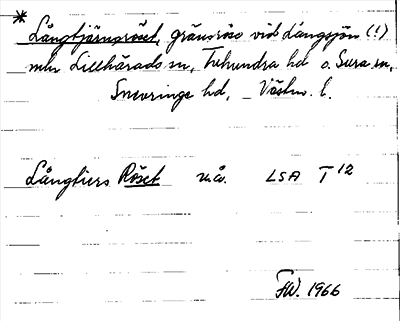 * Långtjärnsröset, gränsröse vid Långsjön (!)
mln Lillhärads sn, Tuhundra hd o. Sura sn,
Snevringe hd, – Västm. l.
Långtiers Röset u.å. LSA T 12
FW. 1966